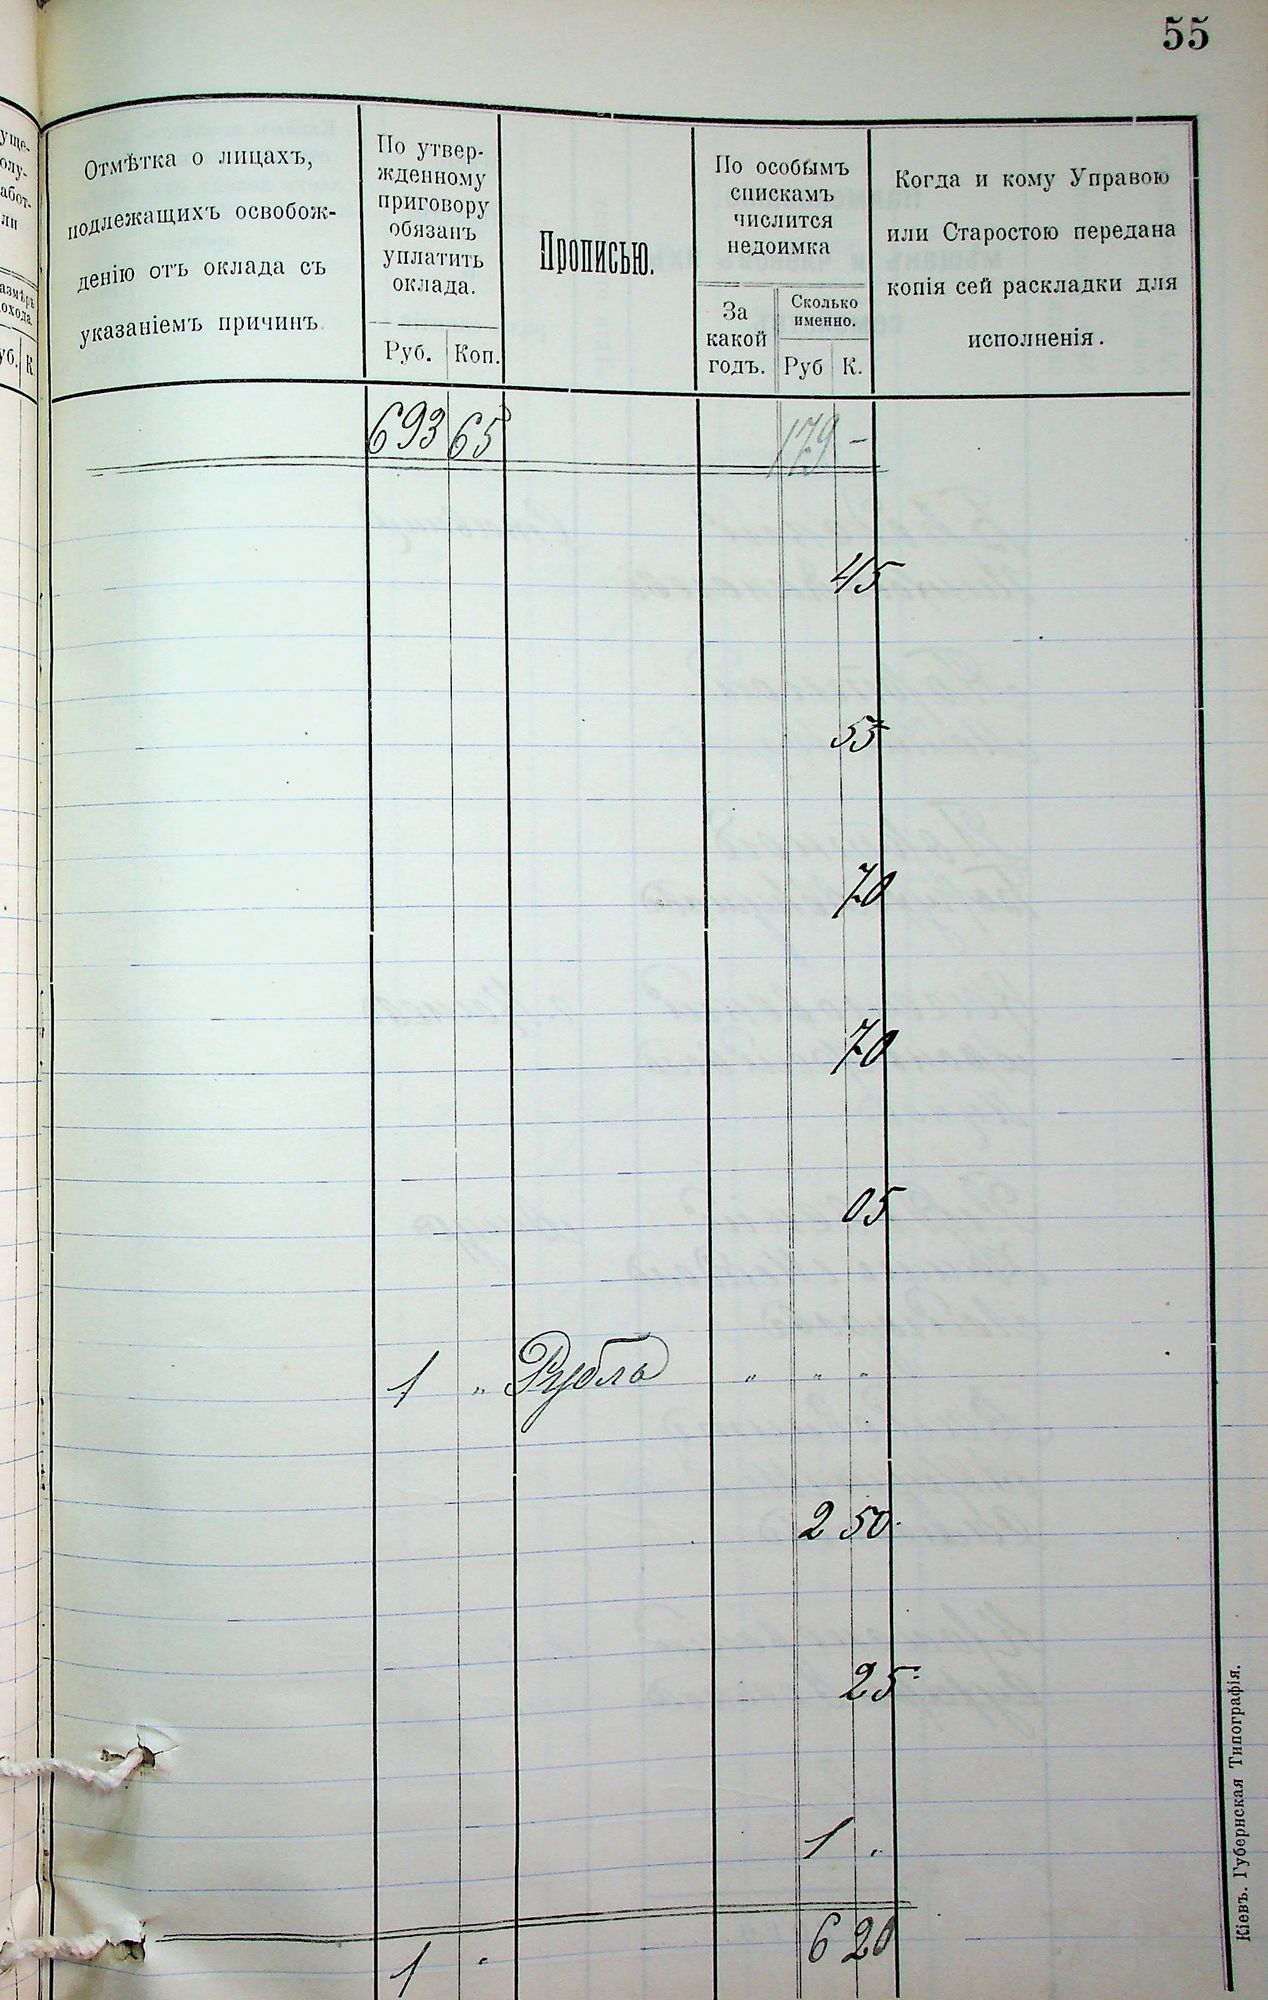 55
Отмѣтка о лицахъ,
подлежащихъ освобож-
денію отъ оклада съ
указаніемъ причинъ.
По утвер-
жденному
приговору
обязанъ
уплатить
оклада.
Руб. Коп.
Прописью.
По особымъ
спискамъ
числится
недоимка
За
какой
годъ.
Сколько
именно.
Руб К.
Когда и кому Управою
или Старостою передана
копія сей раскладки для
исполненія.
693 65 179 –
45
55
70
70
05
1 „ Рубль „ „ „
2 50.
25
1 „
6 20
1 „
Кіевъ. Губернская Типографія.